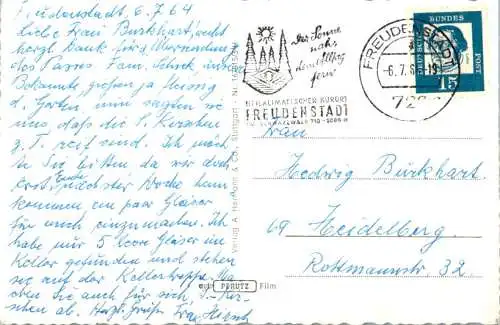 Freudenstadt, 6.7.64
Liebe Frau Burkhart, recht
herzl. Dank für d.
des Passes. Fam. Schick
Bekannte, großen ja fleißig
d. Garten und sagten sie
uns, daß die P. Kirschen
z. T. reif sind. Ich
Sie bitten da wir doch
erst Ende nächster Woche heim
kommen ein paar Gläser
für mich einzumachen. Ich
habe nur 5 leere Gläser im
Keller gefunden und stehen
sie auf der Kellertreppe. Ma
chen Sie auch für sich, S-Kir-
schen ab. Herzl. Grüße Frau
Verlag A. & Co., Stuttgart - Nr.
Der Sonne
nahe
dem Alltag
fern
HEILKLIMATISCHER KURORT
FREUDENSTADT
SCHWARZWALD 740-1000 M
FREUDENSTADT
-6.7.64
729
DEUTSCHE BUNDESPOST
15
Frau
Hedwig Burkhart
69 Heidelberg
Rottmannstr. 32
auf PERUTZ Film